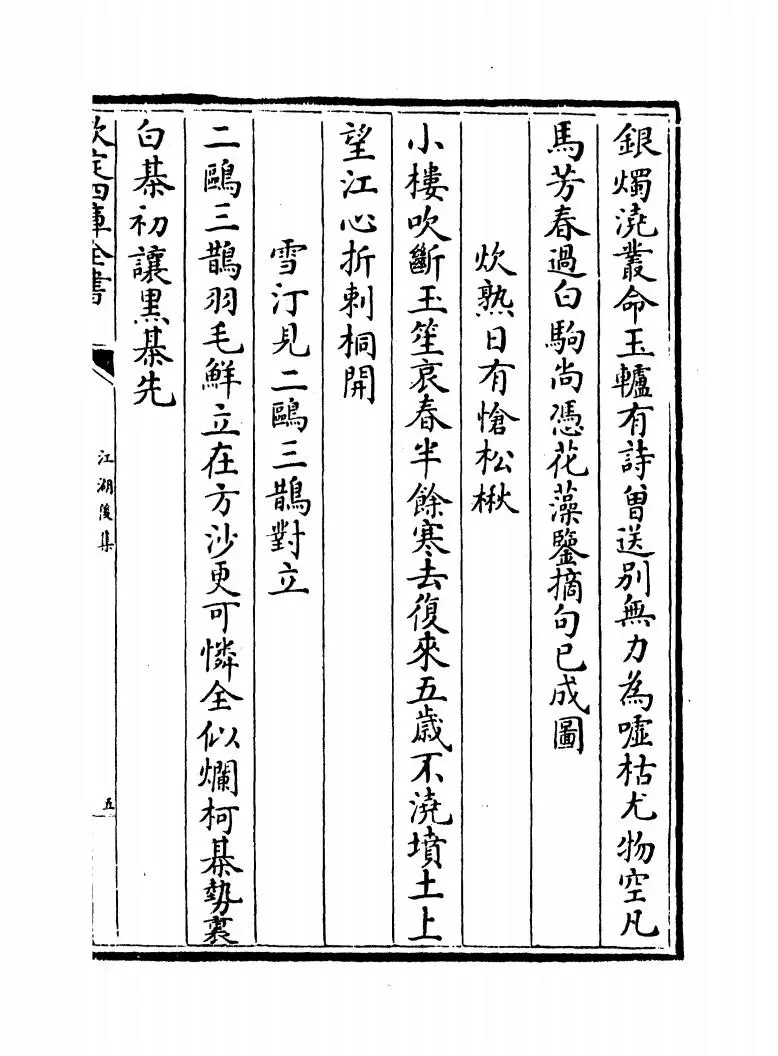 銀燭澆叢命玉轤有詩曾送别無力為噓枯尤物空凡
馬芳春過白駒尚憑花藻鑒摘句已成圖
炊熟日有愴松楸
小樓吹斷玉笙哀春半餘寒去復來五歳不澆墳土上
望江心折刺桐開
雪汀見二鷗三鵲對立
二鷗三鵲羽毛鮮立在方沙更可憐全似爛柯棊勢裏
白棊初讓黒棊先
欽定四庫全書
江湖後集
五